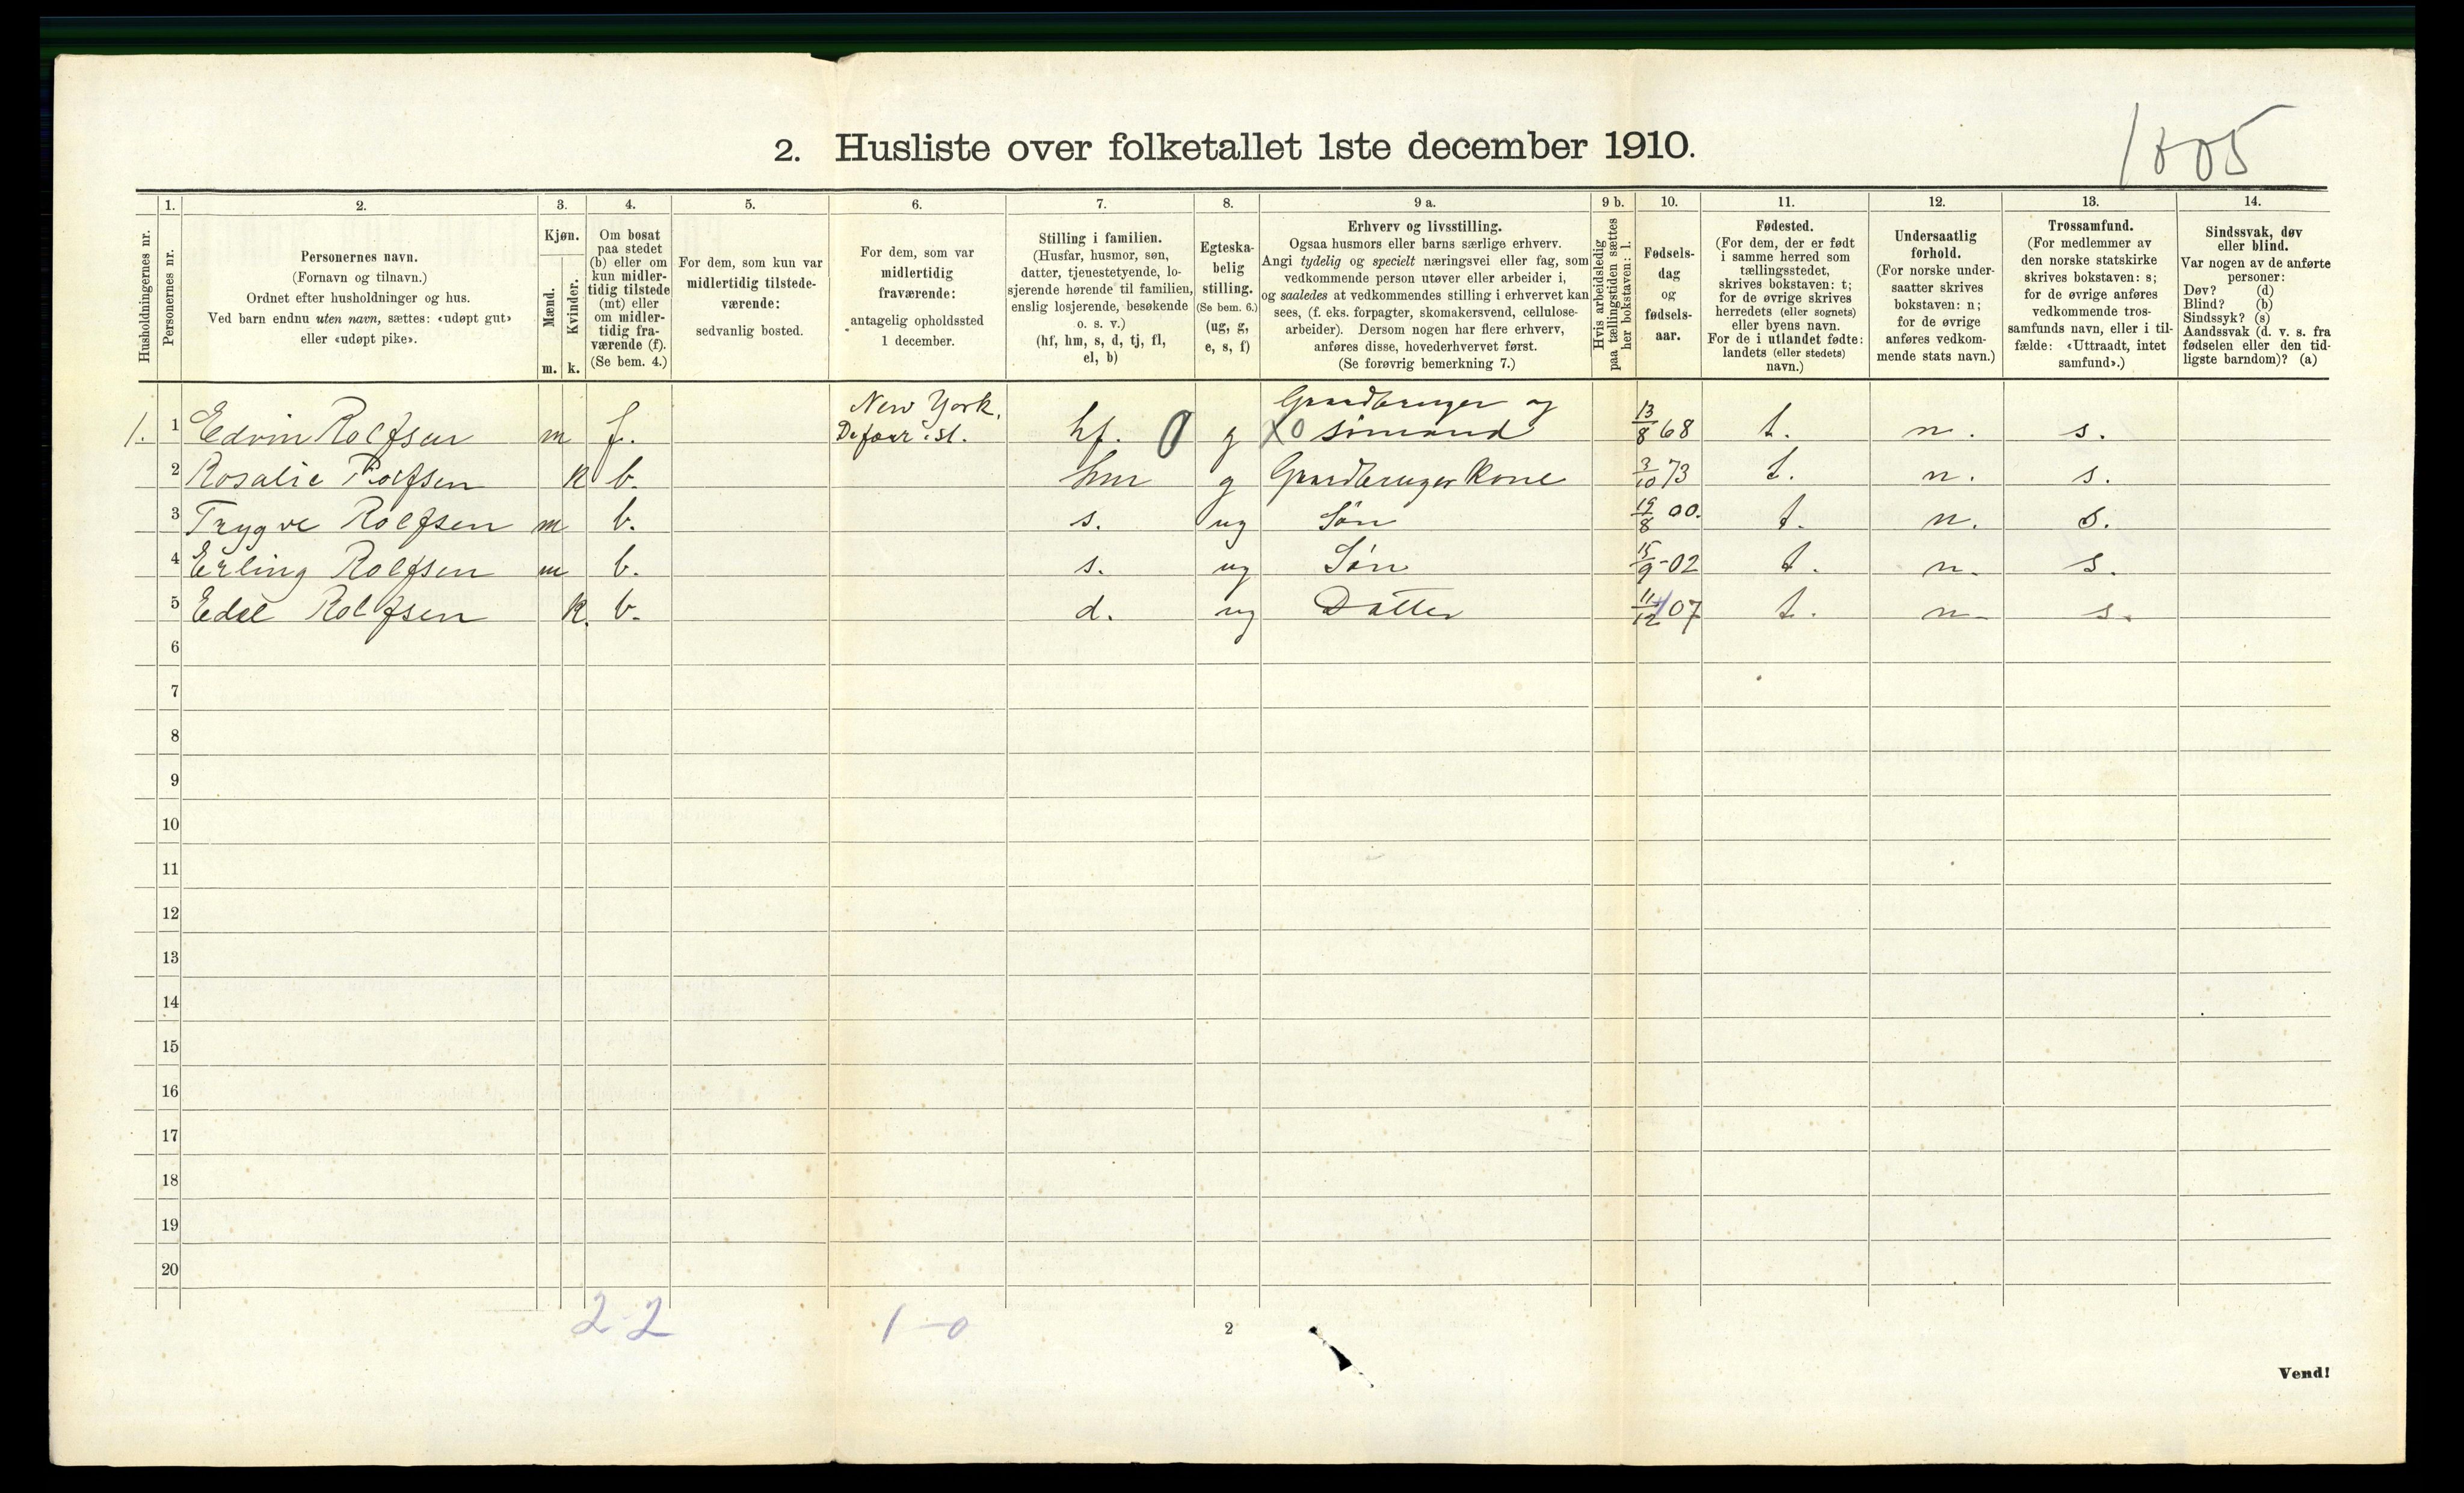 1885
2. Husliste over folketallet 1ste december 1910.
Husholdningernes nr.
1.
Personernes nr.
2.
Personernes navn.
(Fornavn og tilnavn.)
Ordnet efter husholdninger og hus.
Ved barn endnu uten navn, sættes: «udøpt gut»
eller «udøpt pike».
3.
Kjøn.
Mænd.
Kvinder.
m. k.
4.
Om bosat
paa stedet
(b) eller om
kun midler-
tidig tilstede
(mt) eller
om midler-
tidig fra-
værende (f).
(Se bem. 4.)
5.
For dem, som kun var
midlertidig tilstede-
værende:
sedvanlig bosted.
6.
For dem, som var
midlertidig
fraværende:
antagelig opholdssted
1 december.
7.
Stilling i familien.
(Husfar, husmor, søn,
datter, tjenestetyende, lo-
sjerende hørende til familien,
enslig losjerende, besøkende
o. s. v.)
(hf, hm, s, d, tj, fl,
el, b)
8.
Egteska-
belig
stilling.
(Se bem. 6.)
(ug, g,
e, s, f)
9 a.
Erhverv og livsstilling.
Ogsaa husmors eller barns særlige erhverv.
Angi tydelig og specielt næringsvei eller fag, som
vedkommende person utøver eller arbeider i,
og saaledes at vedkommendes stilling i erhvervet kan
sees, (f. eks. forpagter, skomakersvend, cellulose-
arbeider). Dersom nogen har flere erhverv,
anføres disse, hovederhvervet først.
(Se forøvrig bemerkning 7.)
9 b.
Hvis arbeidsledig
paa tællingstiden sættes
her bokstaven: l.
10.
Fødsels-
dag
og
fødsels-
aar.
11.
Fødested.
(For dem, der er født
i samme herred som
tællingsstedet,
skrives bokstaven: t;
for de øvrige skrives
herredets (eller sognets)
eller byens navn.
For de i utlandet fødte:
landets (eller stedets)
navn.)
12.
Undersaatlig
forhold.
(For norske under-
saatter skrives
bokstaven: n;
for de øvrige
anføres vedkom-
mende stats navn.)
13.
Trossamfund.
(For medlemmer av
den norske statskirke
skrives bokstaven: s;
for de øvrige anføres
vedkommende tros-
samfunds navn, eller i til-
fælde: «Uttraadt, intet
samfund».)
14.
Sindssvak, døv
eller blind.
Var nogen av de anførte
personer:
Døv? (d)
Blind? (b)
Sindssyk? (s)
Aandssvak (d. v. s. fra
fødselen eller den tid-
ligste barndom)? (a)
New York, Gaardbruger og
1. 1 Edvin Rolfsen m f. st. hf. 0 g X0 sømand 13/8 68 t. n. s.
2 Rosalie Rolfsen k b. hm g Gaardbruger kone 3/10 73 t. n. s.
3 Trygve Rolfsen m b. s. ug Søn 19/8 00. t. n. s.
4 Erling Rolfsen m b. s. ug Søn 15/9-02 t. n. s.
5 Edel Rolfsen k. b. d. ug Datter 11/12 07 t. n. s.
6
7
8
9
10
11
12
13
14
15
16
17
18
19
20
2-2 1-0
2
Vend!